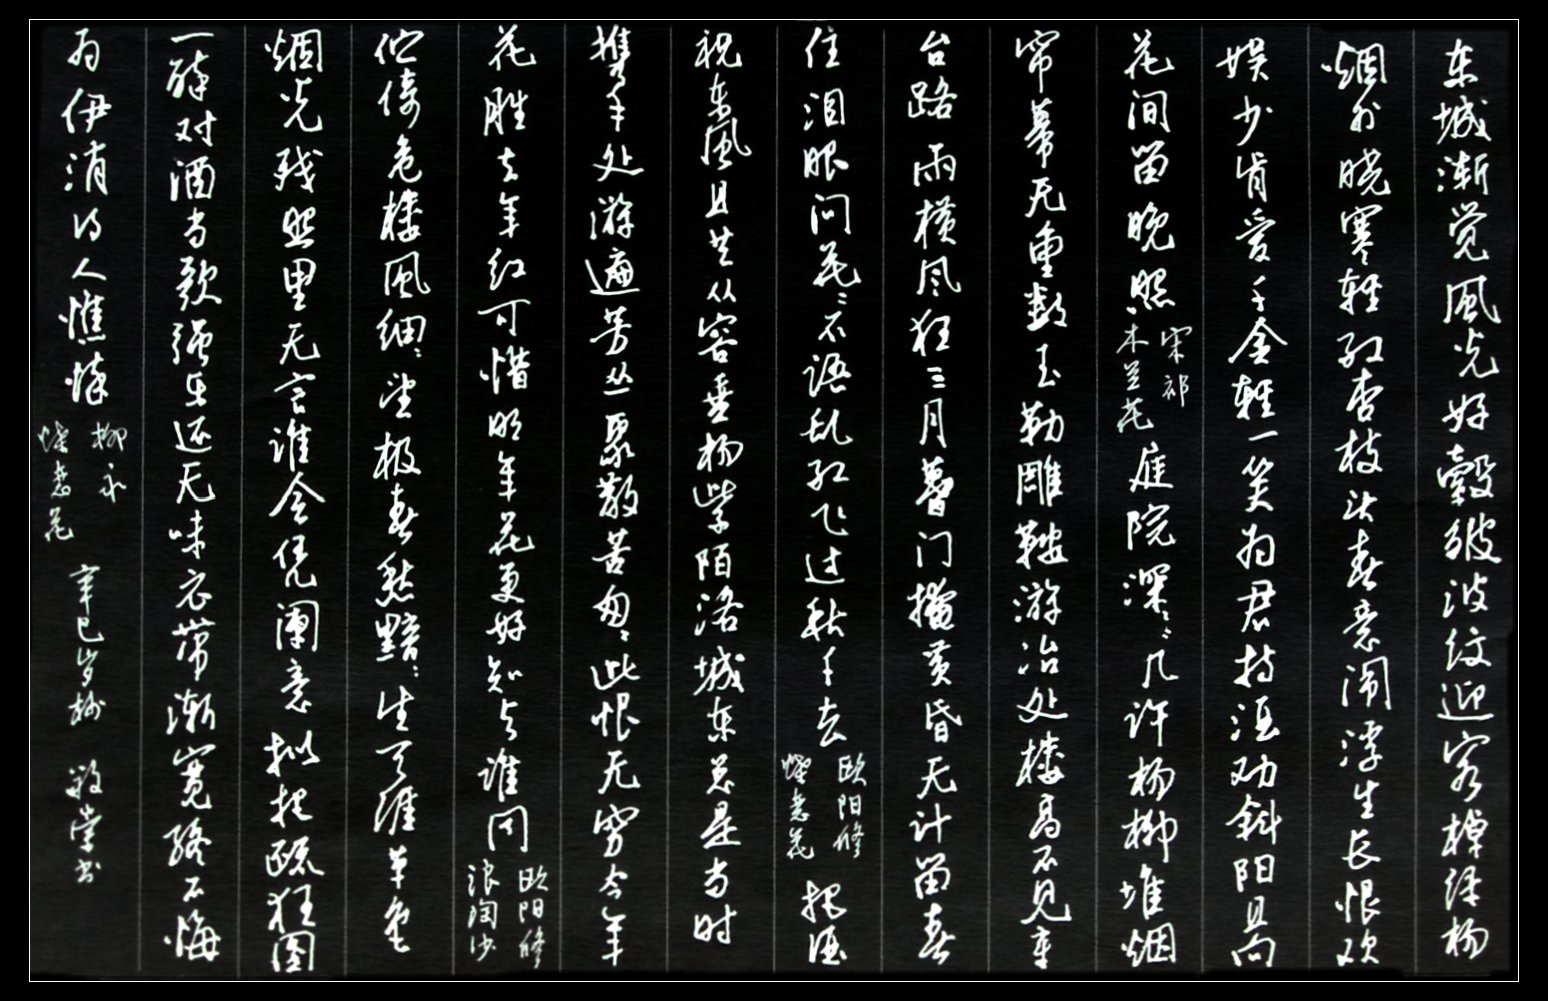 东城渐觉風光好縠皱波纹迎客棹绿杨
烟外晓寒轻红杏枝头春意闹浮生长恨欢
娱少肯爱千金轻一笑为君持酒劝斜阳且向
花间留晚照 宋祁 木兰花 庭院深〻几许杨柳堆烟
帘幕无重数玉勒雕鞍游冶处楼高不见章
台路雨横风狂三月暮门掩黄昏无计留春
住泪眼问花〻不语乱红飞过秋千去 欧阳修 蝶恋花 把酒
祝东風且共从容垂杨紫陌洛城东总是当时
携手处游遍芳丛聚散苦匆〻此恨无穷今年
花胜去年红可惜明年花更好知与谁同 欧阳修 浪淘沙
伫倚危楼風细〻望极春愁黯〻生天涯草色
烟光残照里无言谁会凭阑意拟把疏狂图
一醉对酒当歌强乐还无味衣带渐宽终不悔
为伊消得人憔悴 柳永 蝶恋花 辛巳岁杪 书